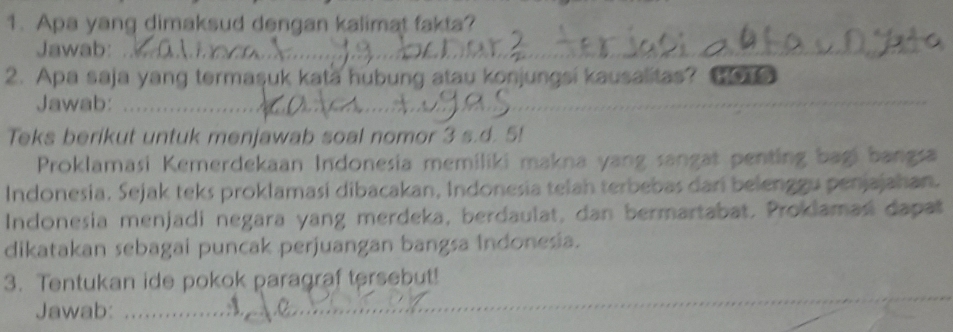 1. Apa yang dimaksud dengan kalimat fakta?
Jawab: Kalimat yg benar2 terjadi atau nyata
2. Apa saja yang termasuk kata hubung atau konjungsi kausalitas? HOTS
Jawab: kata tugas
Teks berikut untuk menjawab soal nomor 3 s.d. 5!
Proklamasi Kemerdekaan Indonesia memiliki makna yang sangat penting bagi bangsa
Indonesia. Sejak teks proklamasi dibacakan, Indonesia telah terbebas dari belenggu penjajahan.
Indonesia menjadi negara yang merdeka, berdaulat, dan bermartabat. Proklamasi dapat
dikatakan sebagai puncak perjuangan bangsa Indonesia.
3. Tentukan ide pokok paragraf tersebut!
Jawab: ide Pokok